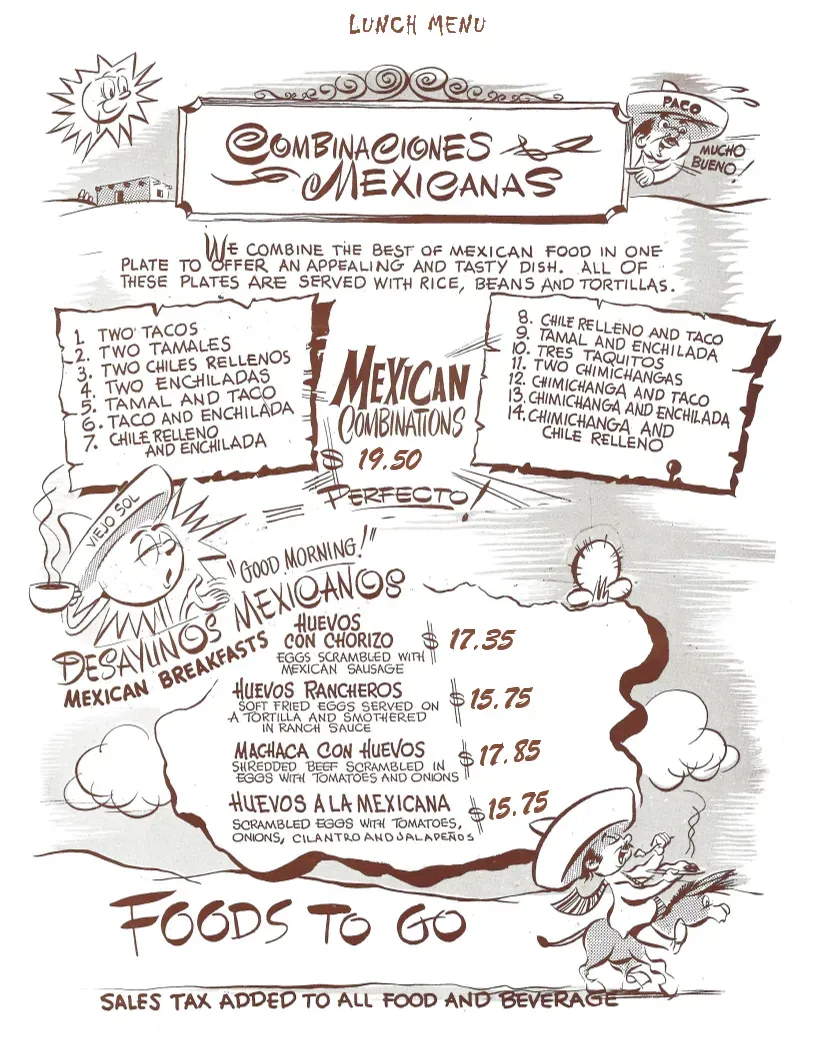 LUNCH MENU
COMBINACIONES
MEXICANAS
PACO
MUCHO
BUENO!
WE COMBINE THE BEST OF MEXICAN FOOD IN ONE
PLATE TO OFFER AN APPEALING AND TASTY DISH. ALL OF
THESE PLATES ARE SERVED WITH RICE, BEANS AND TORTILLAS.
1. TWO TACOS
2. TWO TAMALES
3. TWO CHILES RELLENOS
4. TWO ENCHILADAS
5. TAMAL AND TACO
6. TACO AND ENCHILADA
7. CHILE RELLENO
AND ENCHILADA
MEXICAN
COMBINATIONS
$ 19.50
PERFECTO!
8. CHILE RELLENO AND TACO
9. TAMAL AND ENCHILADA
10. TRES TAQUITOS
11. TWO CHIMICHANGAS
12. CHIMICHANGA AND TACO
13. CHIMICHANGA AND ENCHILADA
14. CHIMICHANGA AND
CHILE RELLENO
VIEJO SOL
"GOOD MORNING!"
DESAYUNOS MEXICANOS
MEXICAN BREAKFASTS
HUEVOS
CON CHORIZO $ 17.35
EGGS SCRAMBLED WITH
MEXICAN SAUSAGE
HUEVOS RANCHEROS $ 15.75
SOFT FRIED EGGS SERVED ON
A TORTILLA AND SMOTHERED
IN RANCH SAUCE
MACHACA CON HUEVOS $ 17.85
SHREDDED BEEF SCRAMBLED IN
EGGS WITH TOMATOES AND ONIONS
HUEVOS A LA MEXICANA $ 15.75
SCRAMBLED EGGS WITH TOMATOES,
ONIONS, CILANTRO AND JALAPEÑOS
FOODS TO GO
SALES TAX ADDED TO ALL FOOD AND BEVERAGE